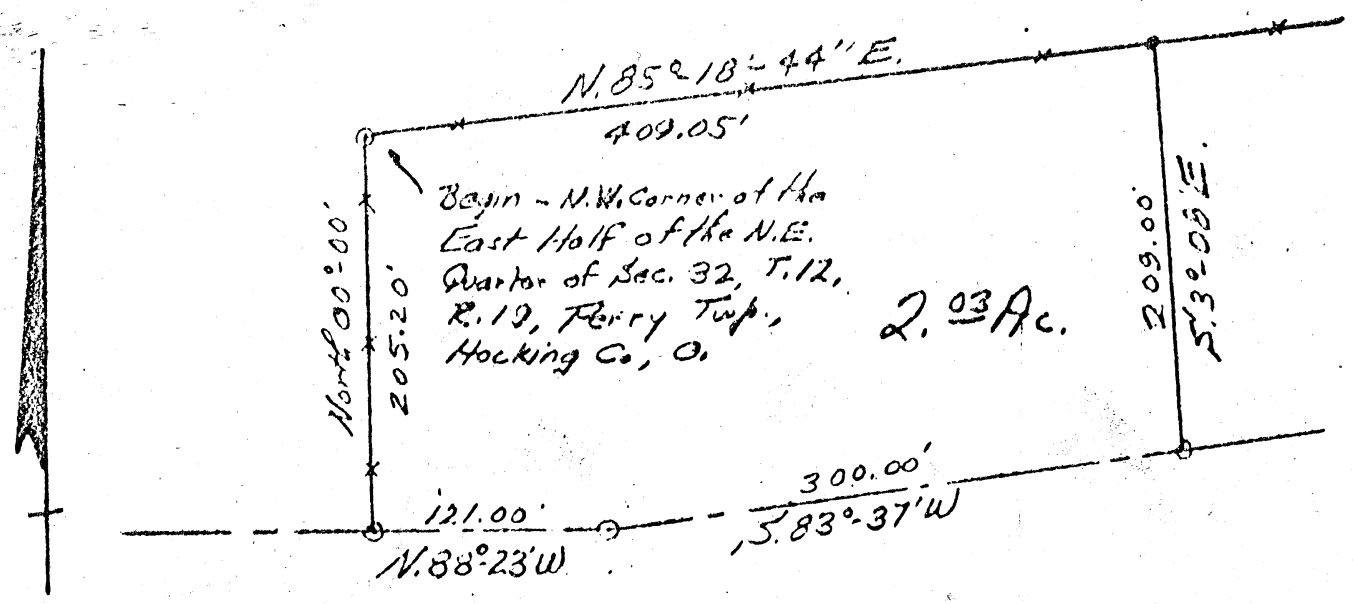 N.85°-18'-44" E.
409.05'
Begin - N.W. Corner of the
East Half of the N.E.
Quarter of Sec. 32, T.12,
R.19, Perry Twp.,
Hocking Co., O.
2.03 Ac.
North 00°-00'
205.20'
209.00'
S.3°-08'E.
121.00'
N.88°-23'W
300.00'
S.83°-37'W